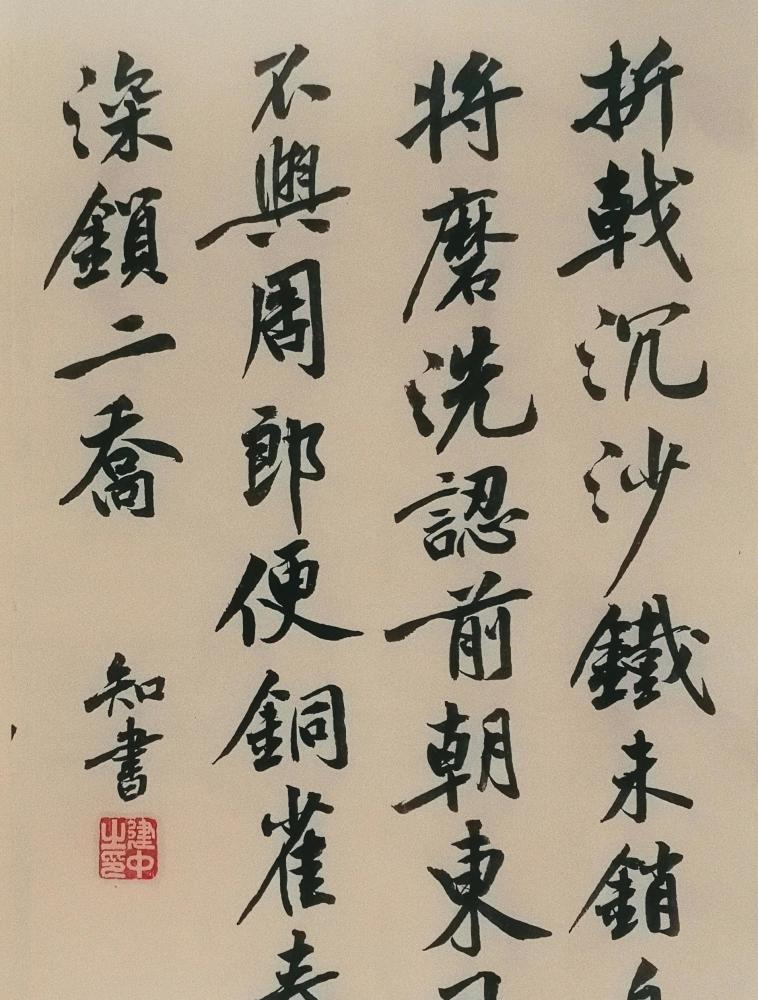 折戟沉沙鐵未銷自
將磨洗認前朝東
不與周郎便銅雀春
深鎖二喬
知書
建中之印